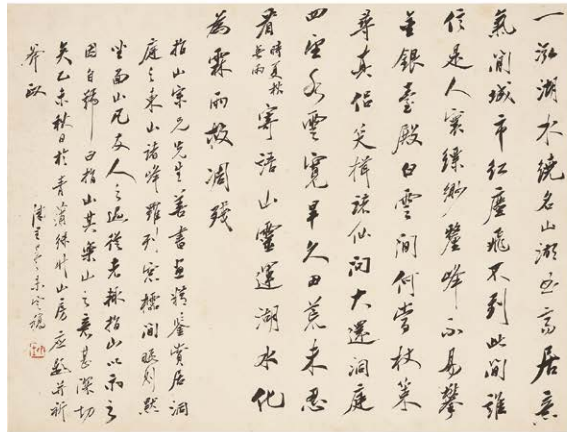 一泓湖水繞名山湖上高居意
氣閒城市紅塵飛不到此間誰
信是人寰縹緲釐峰不易攀
金銀臺殿白雲間何當杖策
尋真侶笑揖諸仙問大還洞庭
四望水雲寬旱久田荒未忍
看時夏秋無雨寄語山靈運湖水化
為霖雨救凋殘
指山宗兄先生善書画精鑒賞居洞
庭之東山諸峰羅列窓櫺間暇則默
坐面山凡友人之過從者輒指山以示之
因自號曰指山其樂山之意甚深切
矣乙未秋日於青蒲綠竹山房應教并祈
斧政